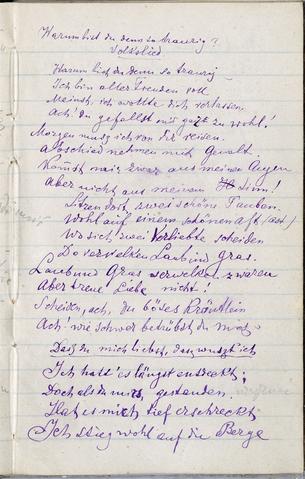 Warum bist du denn so traurig?
Volkslied
Warum bist du denn so traurig
Ich bin aller Freuden voll
Meinst, ich wollte dich verlassen
Ach! Du gefallst mir gar zu wohl!
Morgen muss ich von dir reisen.
Abschied nehmen mit Gewalt
Kommst mir zwar aus meinen Augen
Aber nicht aus meinem Sinn!
Sitzen dort zwei schöne Tauben.
Wohl auf einem schönen Aft (ast)
Wo sich zwei Verliebte scheiden
Do verwelken Laub und Gras.
Laub und Gras verwelken zwaren
Aber treue Liebe nicht!
Scheiden, ach, du böses Kräutlein
Ach! wie schwer betrübst du mich
Dass du mich liebst, das wusst ich
Ich hatt' es längst entdeckt;
Doch als du mir's gestanden
Hat es mich tief erschreckt.
Ich stieg wohl auf die Berge